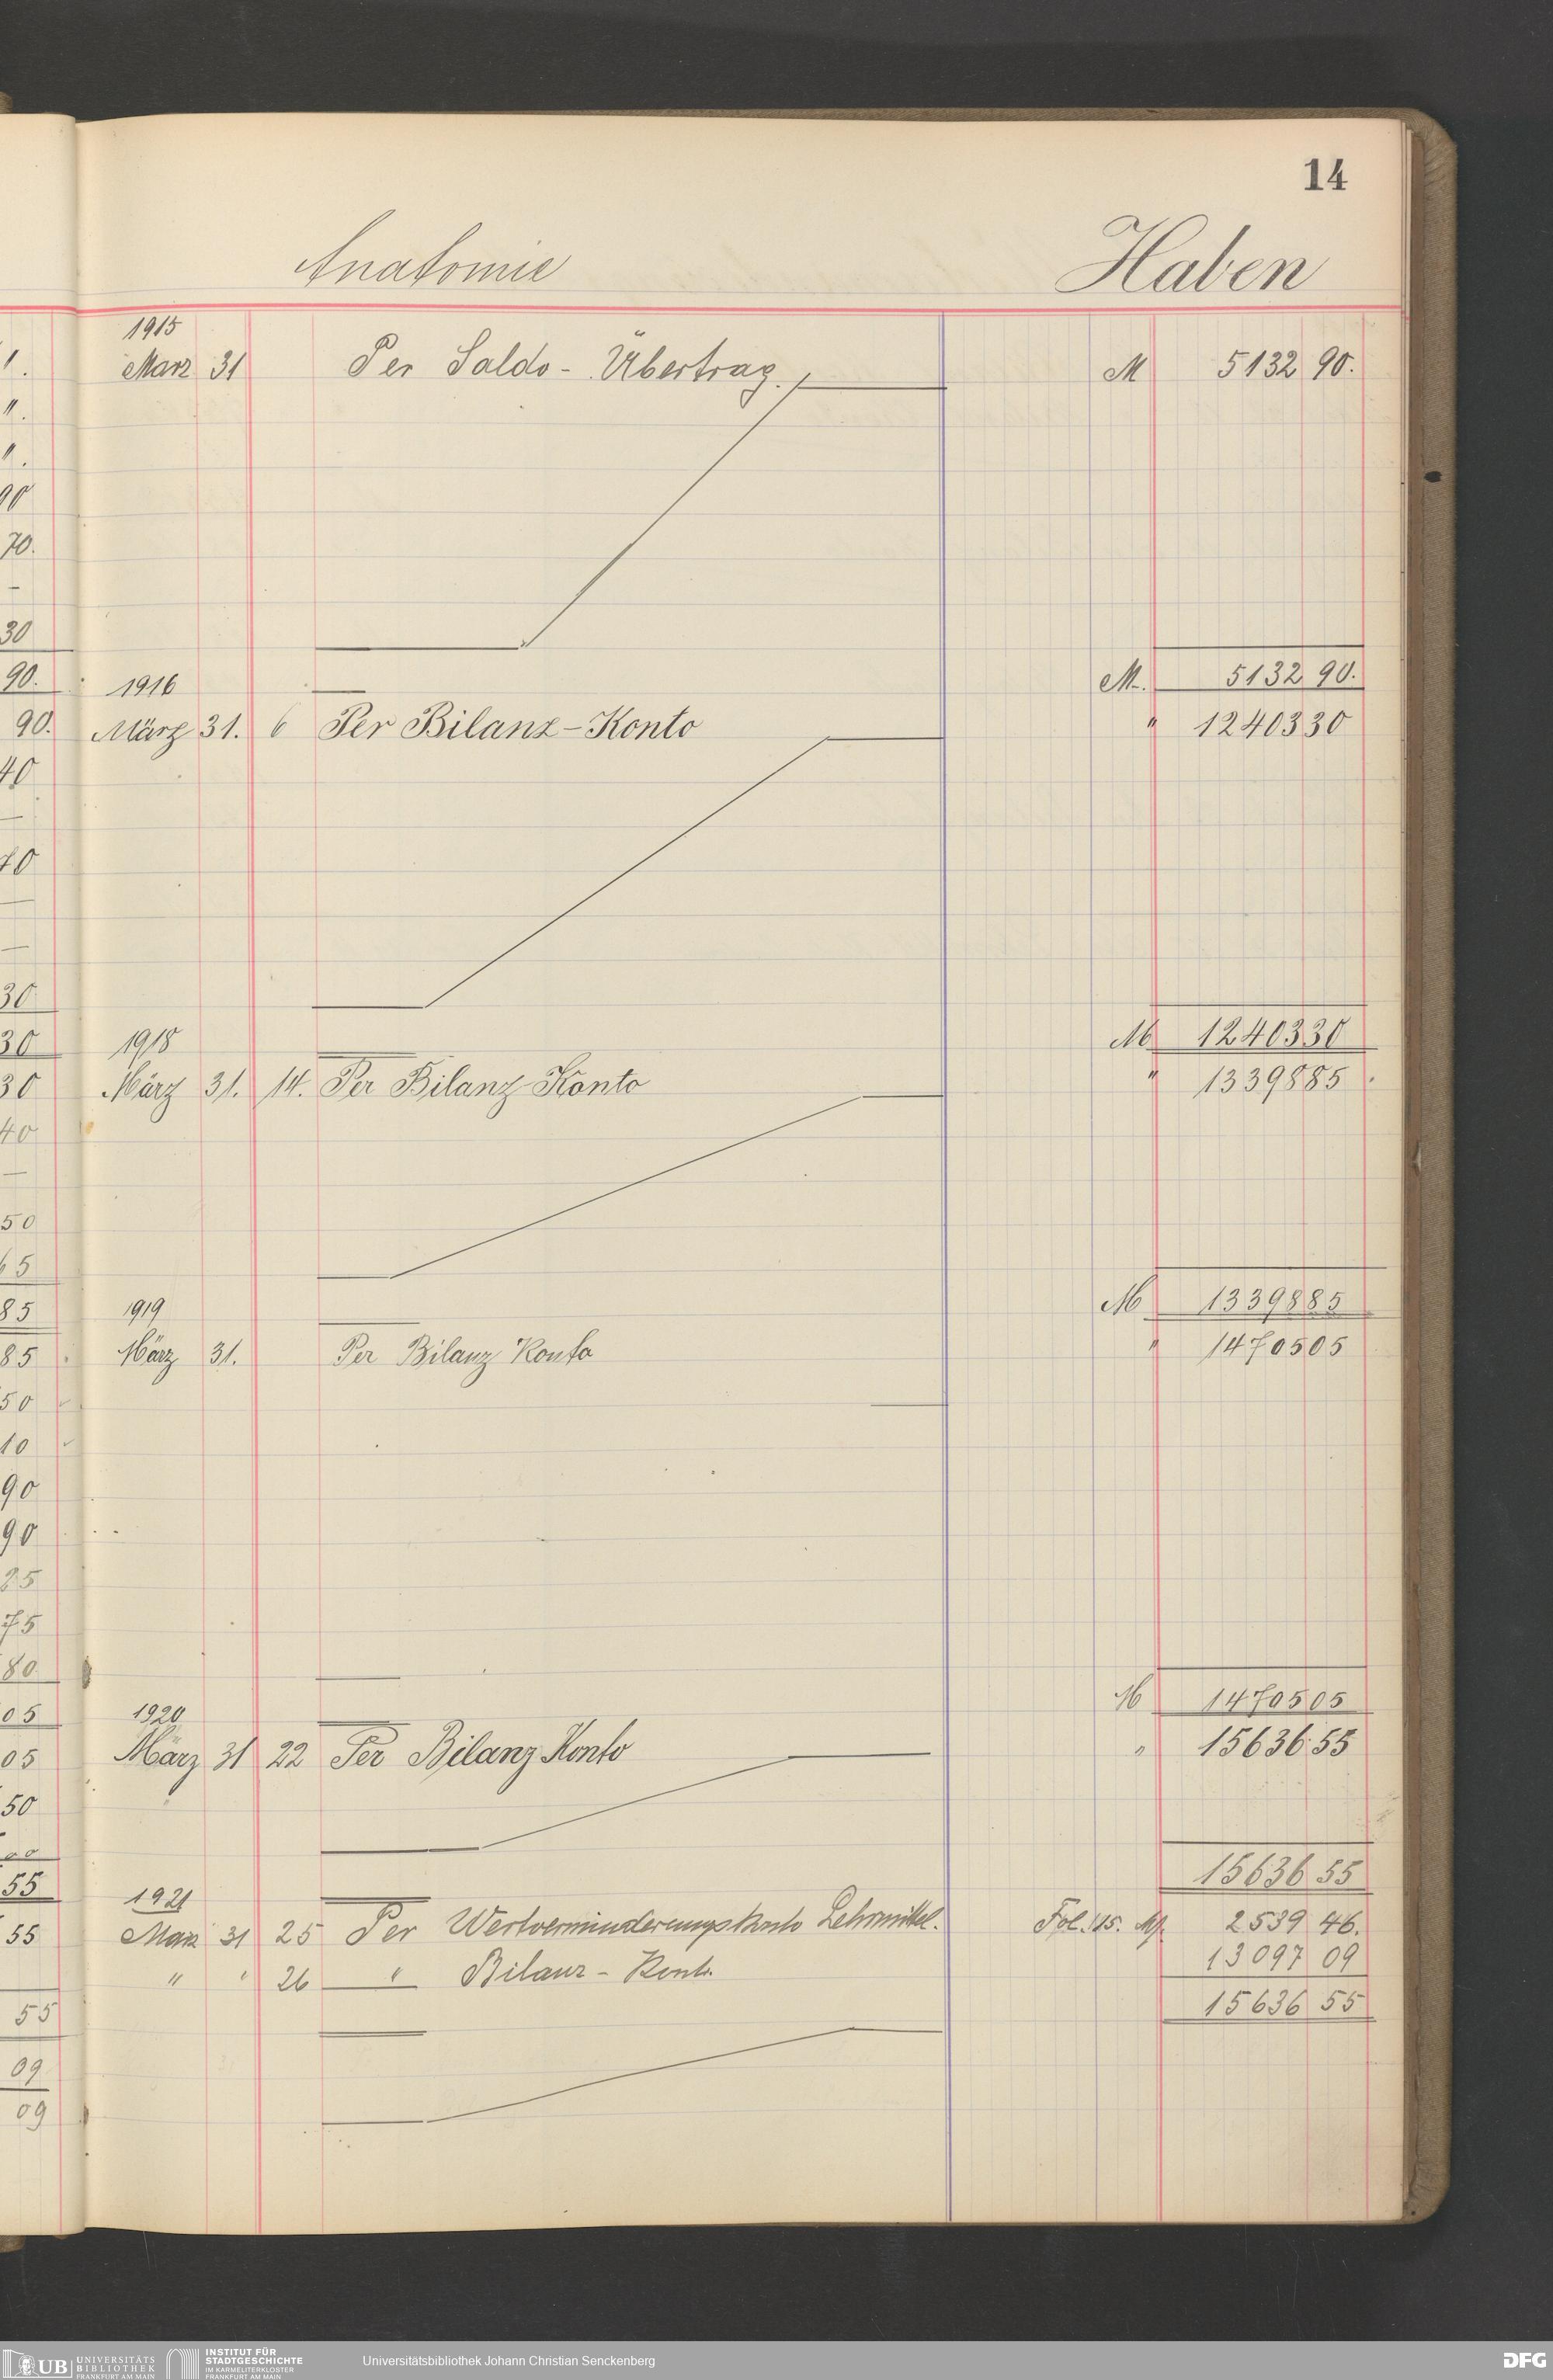 14
Anatomie Haben
1915
März 31 Per Saldo - Übertrag. M 5132 90.
M. 5132 90.
1916
März 31. 6 Per Bilanz-Konto " 12403 30
M 12403 30
1918
März 31. 14. Per Bilanz-Konto " 13398 85
M 13398 85
1919
März 31. Per Bilanz Konto " 14705 05
M 14705 05
1920
März 31 22 Per Bilanz Konto " 15636 55
15636 55
1921
März 31 25 Per Wertverminderungskonto Lehrmittel. Fol. 15. M. 2539 46.
" " 26 " Bilanz - Konto. 13097 09
15636 55
1.
".
".
90
70.
—
30
90.
90.
40
—
70
—
—
30
30
30
40
—
50
65
85
85
50
10
90
90
25
75
80
05
05
50
55
55
55
09
09
UB UNIVERSITÄTS BIBLIOTHEK FRANKFURT AM MAIN
INSTITUT FÜR STADTGESCHICHTE IM KARMELITERKLOSTER FRANKFURT AM MAIN
Universitätsbibliothek Johann Christian Senckenberg
DFG